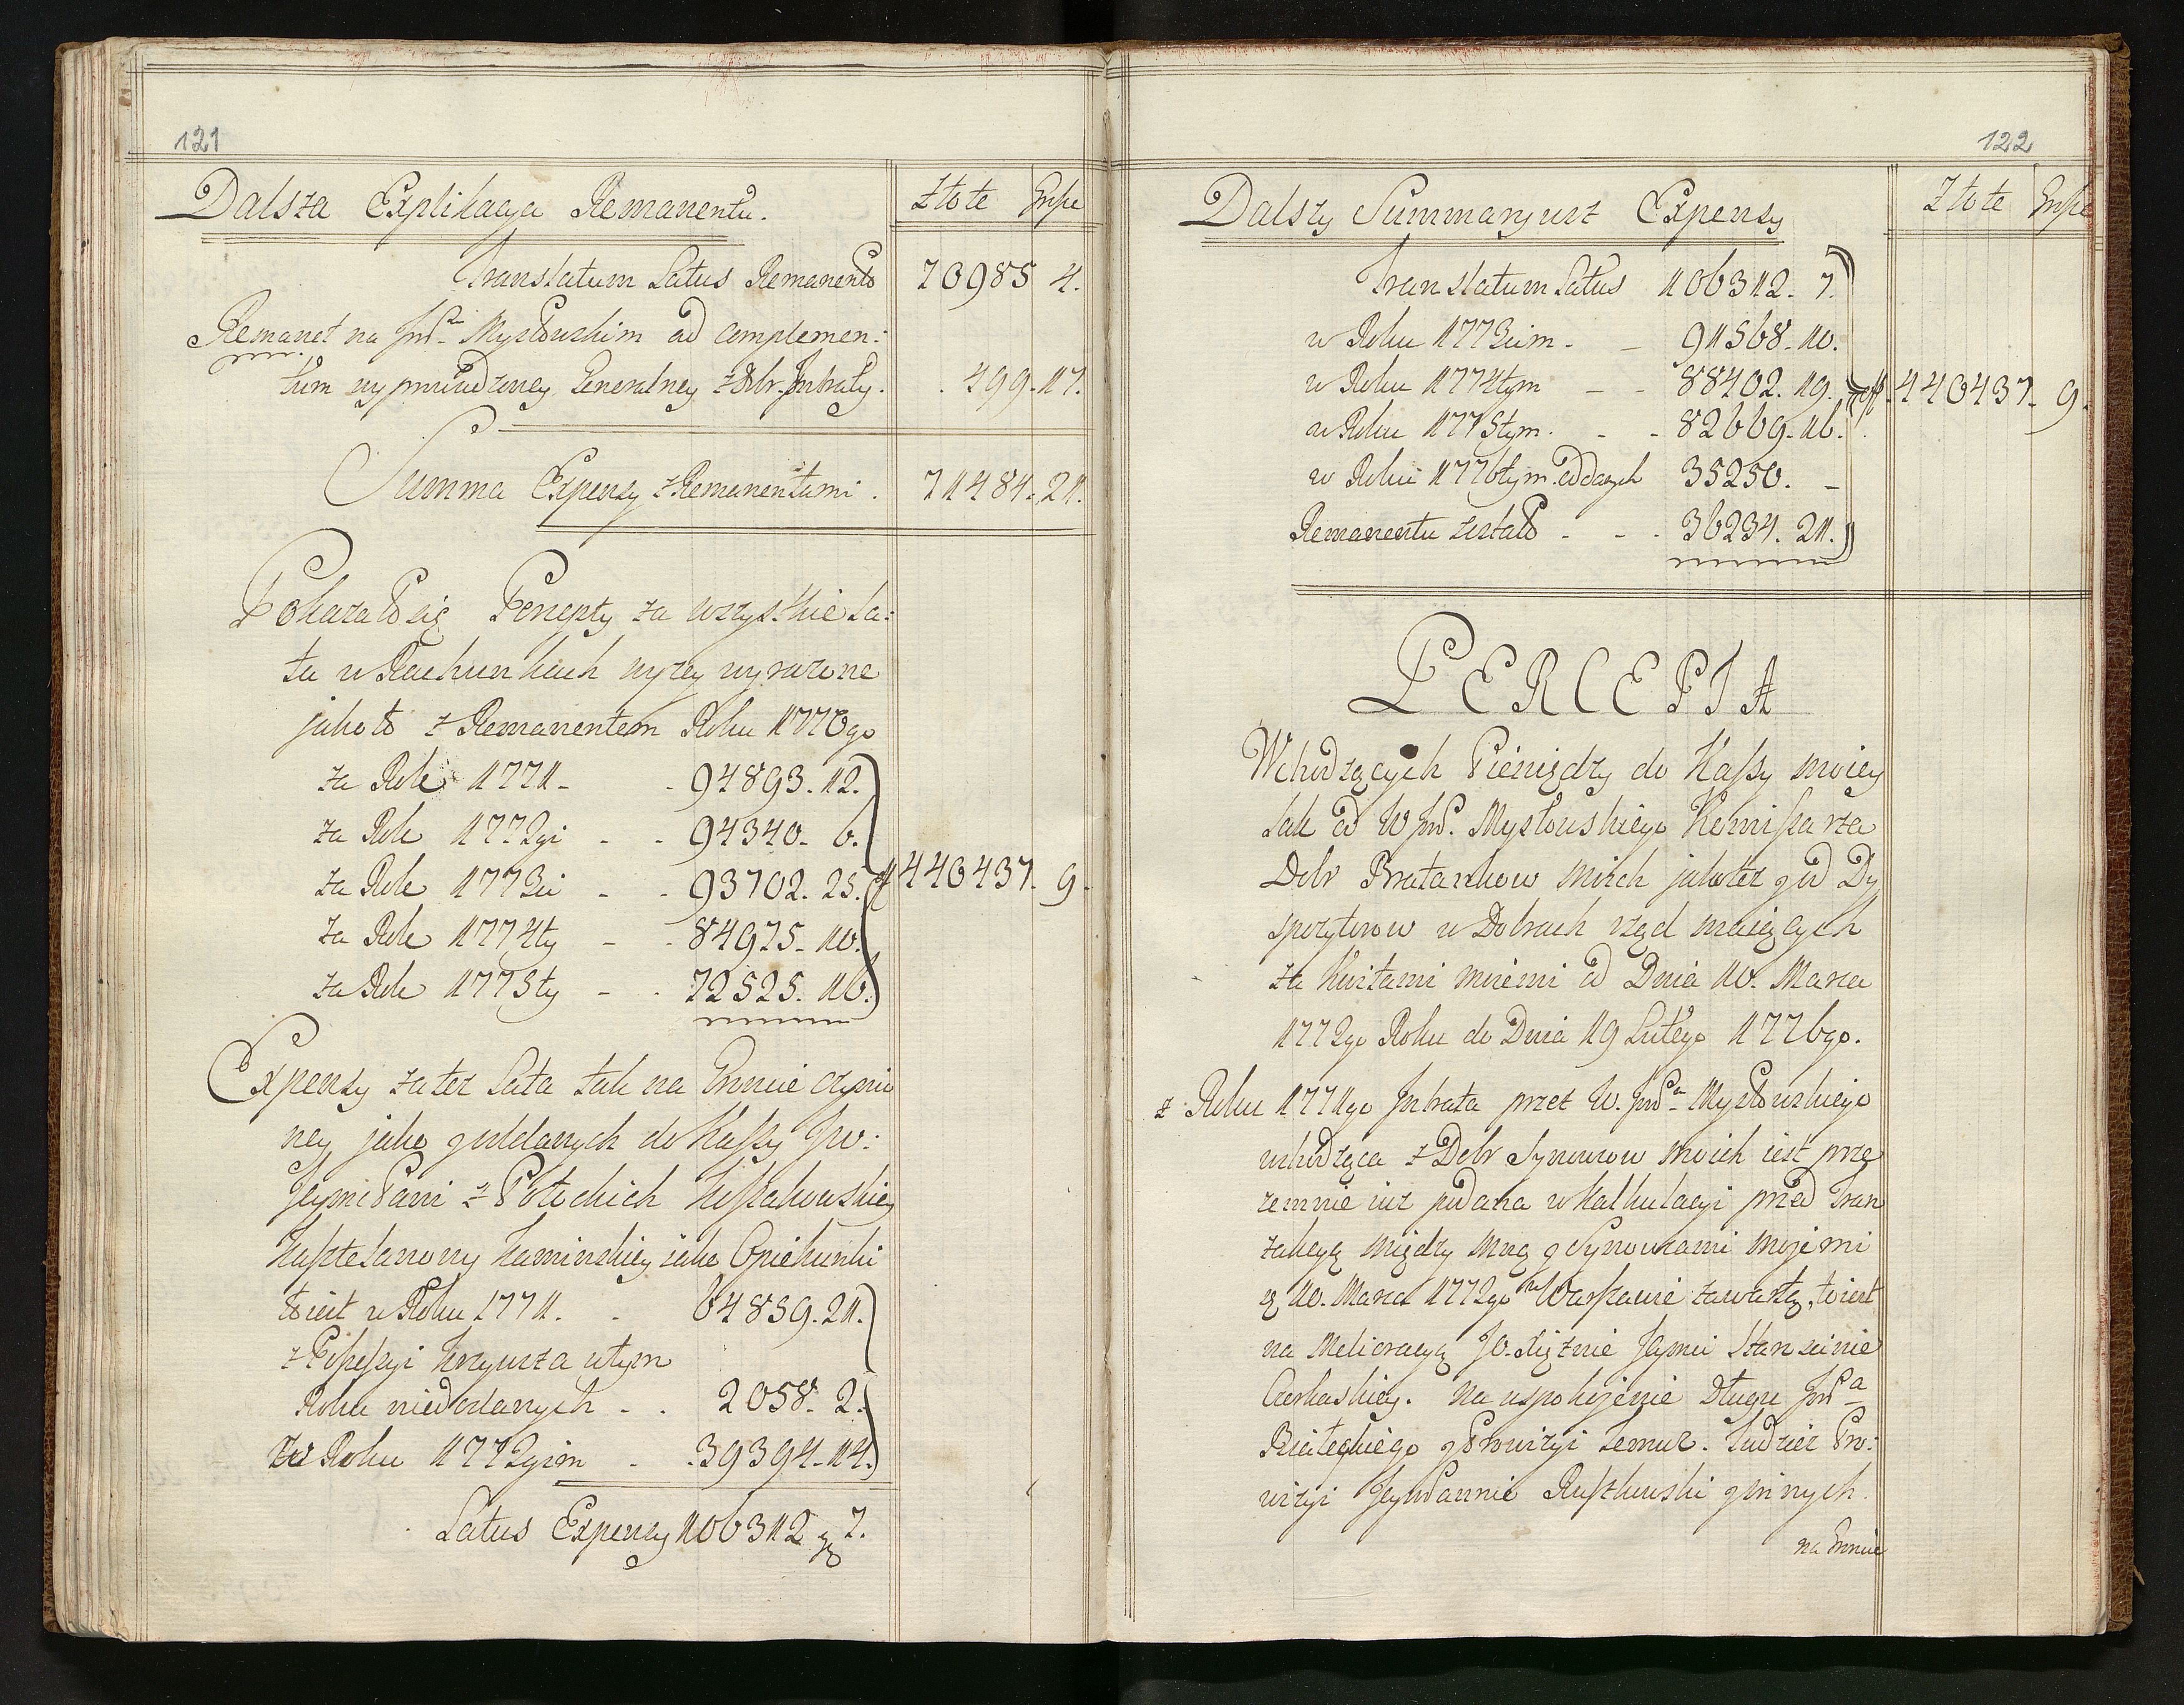 121
Dalsza Explikacya Remanentu. Złote Grosze
Translatum Latus Remanentu 70985 4.
Remanet na Jmć Panu Mysłowskim ad complemen:
tum wyprowadzoney Generalney z Dobr Intraty. . 499. 17.
Summa Expensy z Remanentami . 71484. 21.
Pokazało się Percepty za wszystkie La:
ta w Rachunkach wyzey wyrazone
jako to z Remanentem Roku 1770go
za Rok 1771 - - 94893. 12.
za Rok 1772gi - - 94340. 6.
za Rok 1773ci - - 93702. 25. 440437. 9.
za Rok 1774ty - - 84975. 10.
za Rok 1775ty - - 72525. 16.
Expensy za tez Lata tak na Gruncie czynio
ney jako y oddanych do Kassy Jw:
Jeymci Pani z Potockich Kossakowskiey
Kasztelanowy Kaminskiey jako Opiekunki
to iest w Roku 1771. - 64859. 21.
z Possessyi Krzywcza w tym
Roku niedodanych - . 2058. 2.
w Roku 1772gim - . 39394. 14.
Latus Expensy 106312 g 7.
122
Dalszy Summaryusz Expensy Złote Grosze
Translatum Latus 106312. 7.
w Roku 1773cim - - 91568. 10.
w Roku 1774tym - - 88402. 19. 440437. 9.
w Roku 1775tym. - - 82669. 16.
w Roku 1776tym oddanych 35250. -
Remanentu zostało - - - 36234. 21.
PERCEPTA
Wchodzących Pieniędzy do Kassy moiey
tak od W Jmć. Mysłowskiego Kommissarza
Dobr Bratankow moich jakotez y od Dy
spozytorow w Dobrach rząd maiących
za Kwitami moiemi od Dnia 10. Marca
1772go Roku do Dnia 19 Lutego 1776go.
z Roku 1771go Intrata przez W. Jmć Pa Mysłowskiego
wchodząca z Dobr Synowcow moich iest prze
zemnie iuz podana w Kalkulacyi przed Tran
zakcyą między mną y Synowcami mojemi
g 10. Marca 1772go w Warszawie zawartą, to iest
na Melioracyą Jo. Xiężnie Jeymci Stan
Czerkaskiey. Na uspokojenie Długu Jmć Pa
y Prowizyi temuz. tudziez Pro:
wizyi Jeymć Pannie Ruszkowski y innych.
na Gruncie